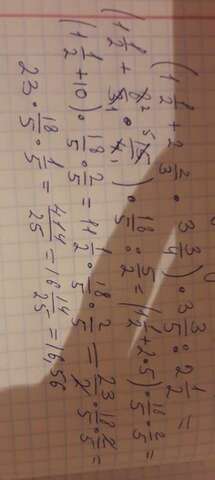 (1 1/2 + 2 2/3 · 3 3/4) · 3 3/5 : 2 1/2 =
(1 1/2 + 8 2/3 1 · 5 15/4 1) · 18/5 : 5/2 = (1 1/2 + 2·5) · 18/5 · 2/5 =
(1 1/2 + 10) · 18/5 · 2/5 = 11 1/2 · 18/5 · 2/5 = 23/2 · 18/5 · 2/5 =
23 · 18/5 · 1/5 = 414/25 = 16 14/25 = 16,56